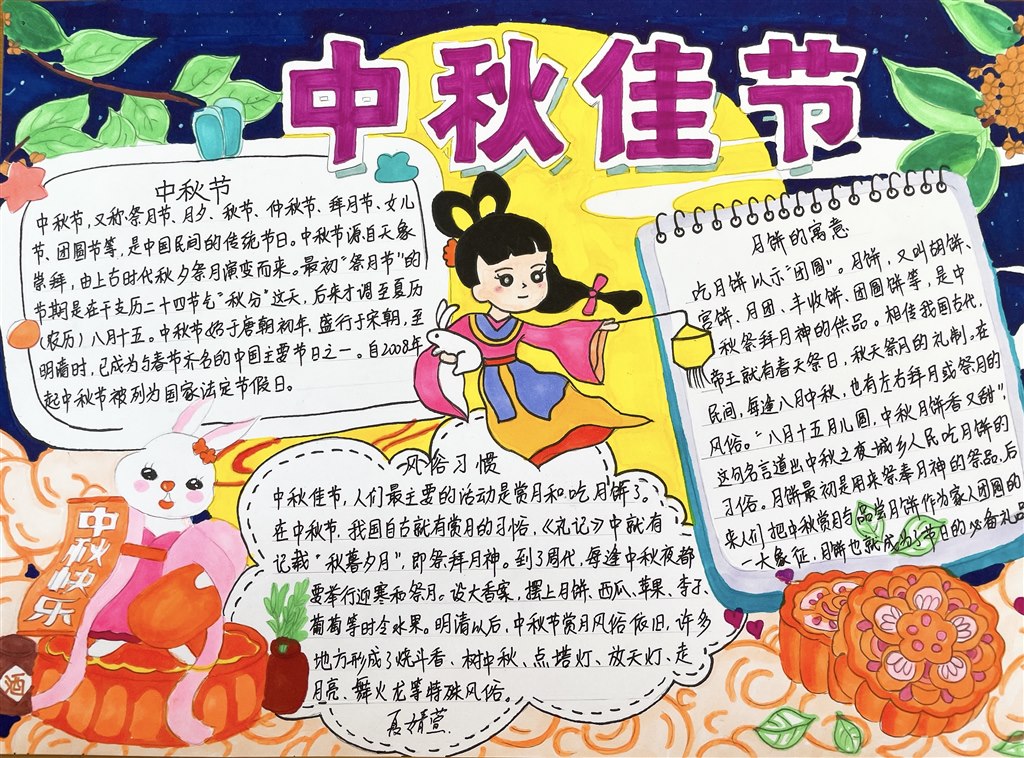 中秋佳节
中秋节
中秋节，又称祭月节、月夕、秋节、仲秋节、拜月节、女儿
节、团圆节等，是中国民间的传统节日。中秋节源自天象
崇拜，由上古时代秋夕祭月演变而来。最初“祭月节”的
节期是在干支历二十四节气“秋分”这天，后来才调至夏历
（农历）八月十五。中秋节始于唐朝初年，盛行于宋朝，至
明清时，已成为与春节齐名的中国主要节日之一。自2008年
起中秋节被列为国家法定节假日。
月饼的寓意
吃月饼以示“团圆”。月饼，又叫胡饼、
宫饼、月团、丰收饼、团圆饼等，是中
秋祭拜月神的供品。相传我国古代，
帝王就有春天祭日，秋天祭月的礼制。在
民间，每逢八月中秋，也有左右拜月或祭月的
风俗。“八月十五月儿圆，中秋月饼香又甜”，
这句名言道出中秋之夜城乡人民吃月饼的
习俗。月饼最初是用来祭奉月神的祭品，后
来人们把中秋赏月与品尝月饼作为家人团圆的
一大象征，月饼也就成为了节日的必备礼品
风俗习惯
中秋佳节，人们最主要的活动是赏月和吃月饼了。
在中秋节，我国自古就有赏月的习俗，《礼记》中就有
记载“秋暮夕月”，即祭拜月神。到了周代，每逢中秋夜都
要举行迎寒和祭月。设大香案，摆上月饼、西瓜、苹果、李子、
葡萄等时令水果。明清以后，中秋节赏月风俗依旧，许多
地方形成了烧斗香、树中秋、点塔灯、放天灯、走
月亮、舞火龙等特殊风俗。
夏婧萱
中秋快乐
酒